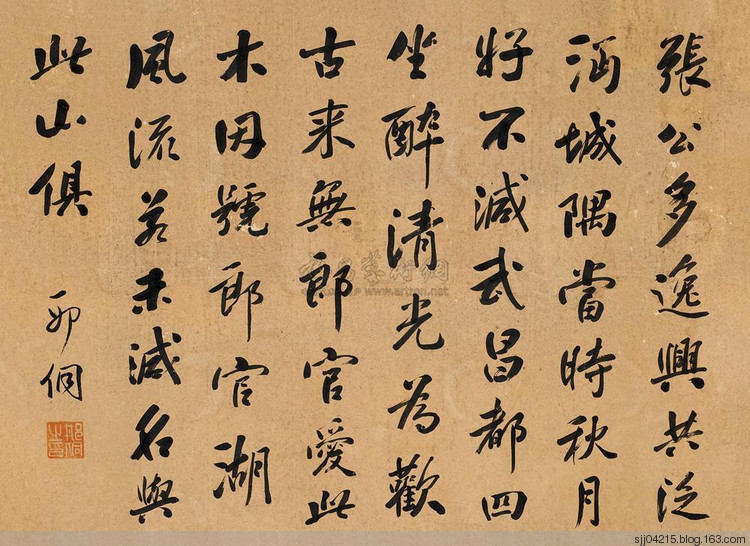 張公多逸興共泛
沔城隅當時秋月
好不減武昌都四
坐醉清光為歡
古來無郎官愛此
水因號郎官湖
風流若未減名與
此山俱
邢侗
www.artron.net
sjj04215.blog.163.com